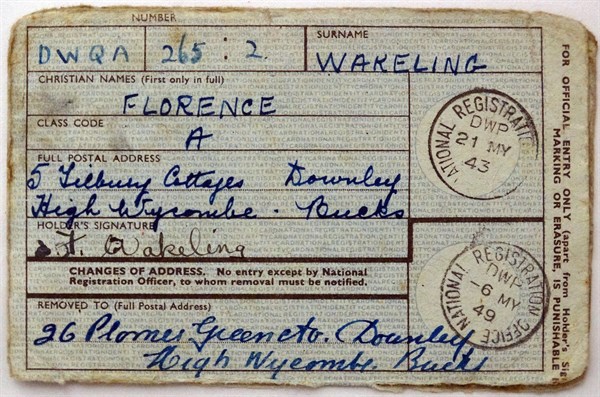 NUMBER
SURNAME
DWQA 265 : 2
WAKELING
CHRISTIAN NAMES (First only in full)
FLORENCE
CLASS CODE
A
FULL POSTAL ADDRESS
5 Tilbury Cottages Downley
High Wycombe. Bucks.
HOLDER'S SIGNATURE
F. Wakeling
CHANGES OF ADDRESS. No entry except by National
Registration Officer, to whom removal must be notified.
REMOVED TO (Full Postal Address)
26 Plomer Green Downley
High Wycombe. Bucks
NATIONAL REGISTRATION
DWP
21 MY
43
NATIONAL REGISTRATION OFFICE
DWP
-6 MY
49
FOR OFFICIAL ENTRY ONLY (apart from Holder's
MARKING OR ERASURE, IS PUNISHABLE